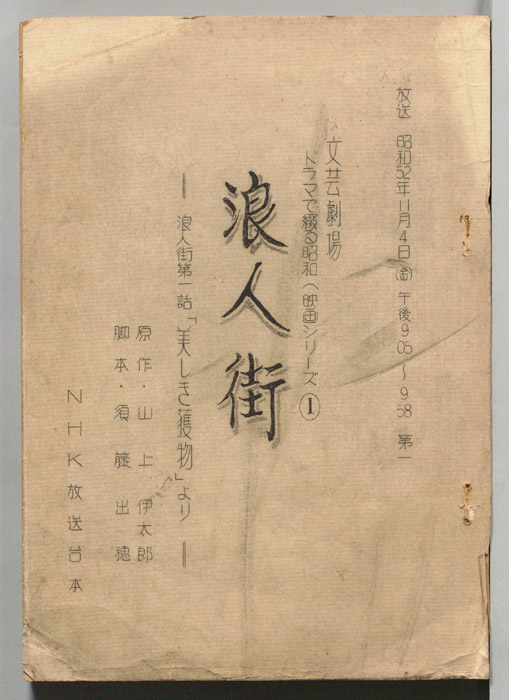 放送 昭和52年11月4日(金) 午後9.05〜9.58 第一
文芸劇場
ドラマで綴る昭和(映画シリーズ①
浪人街
― 浪人街第一話「美しき獲物」より ―
原作・山上伊太郎
脚本・須藤出穂
NHK放送台本